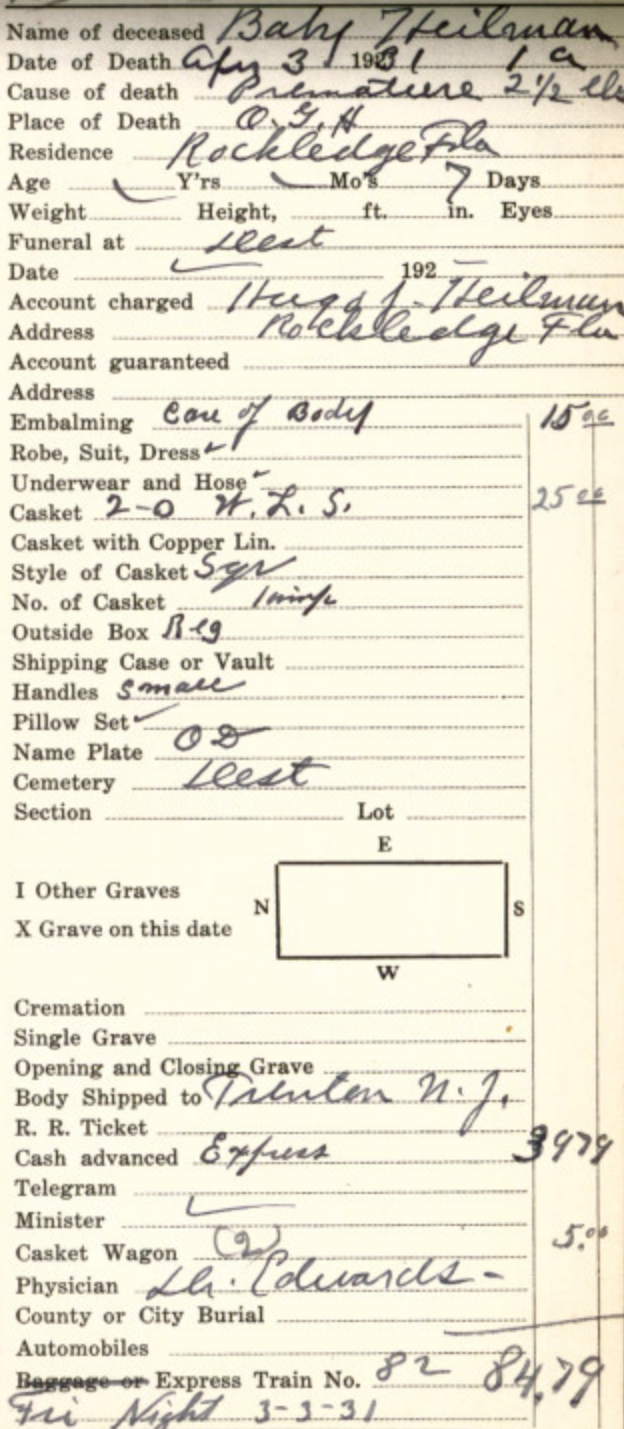 Name of deceased Baby Heilman
Date of Death Apr 3 1931 1 a
Cause of death Premature 2 1/2 lbs
Place of Death O. G. H
Residence Rockledge Fla
Age Y'rs Mo's 7 Days
Weight Height, ft. in. Eyes
Funeral at Dest
Date 192
Account charged Hugo J. Heilman
Address Rockledge Fla
Account guaranteed
Address
Embalming Care of Body 15 00
Robe, Suit, Dress ✓
Underwear and Hose ✓
Casket 2-0 W. L. S. 25 00
Casket with Copper Lin.
Style of Casket Sqr
No. of Casket
Outside Box Reg
Shipping Case or Vault
Handles Small
Pillow Set ✓
Name Plate O D
Cemetery Dest
Section Lot
E
I Other Graves
N S
X Grave on this date
W
Cremation
Single Grave
Opening and Closing Grave
Body Shipped to Trenton N. J.
R. R. Ticket
Cash advanced Express 39 79
Telegram
Minister
Casket Wagon (2) 5.00
Physician Dr. Edwards -
County or City Burial
Automobiles
Baggage or Express Train No. 82 84.79
Fri Night 3-3-31